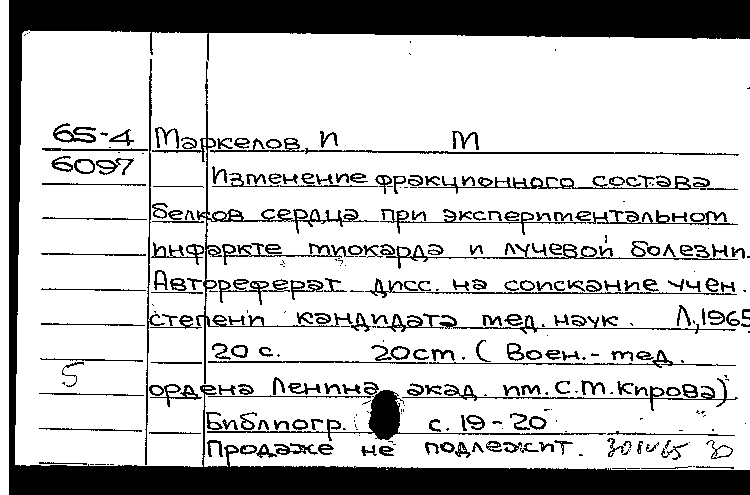 65-4 Маркелов, И М
6097 Изменение фракционного состава
белков сердца при экспериментальном
инфаркте миокарда и лучевой болезни.
Автореферат дисс. на соискание учен.
степени кандидата мед. наук. Л., 1965
20 с. 20см. (Воен.-мед.
5 ордена Ленина акад. им. С.М. Кирова)
Библиогр. с. 19-20
Продаже не подлежит.